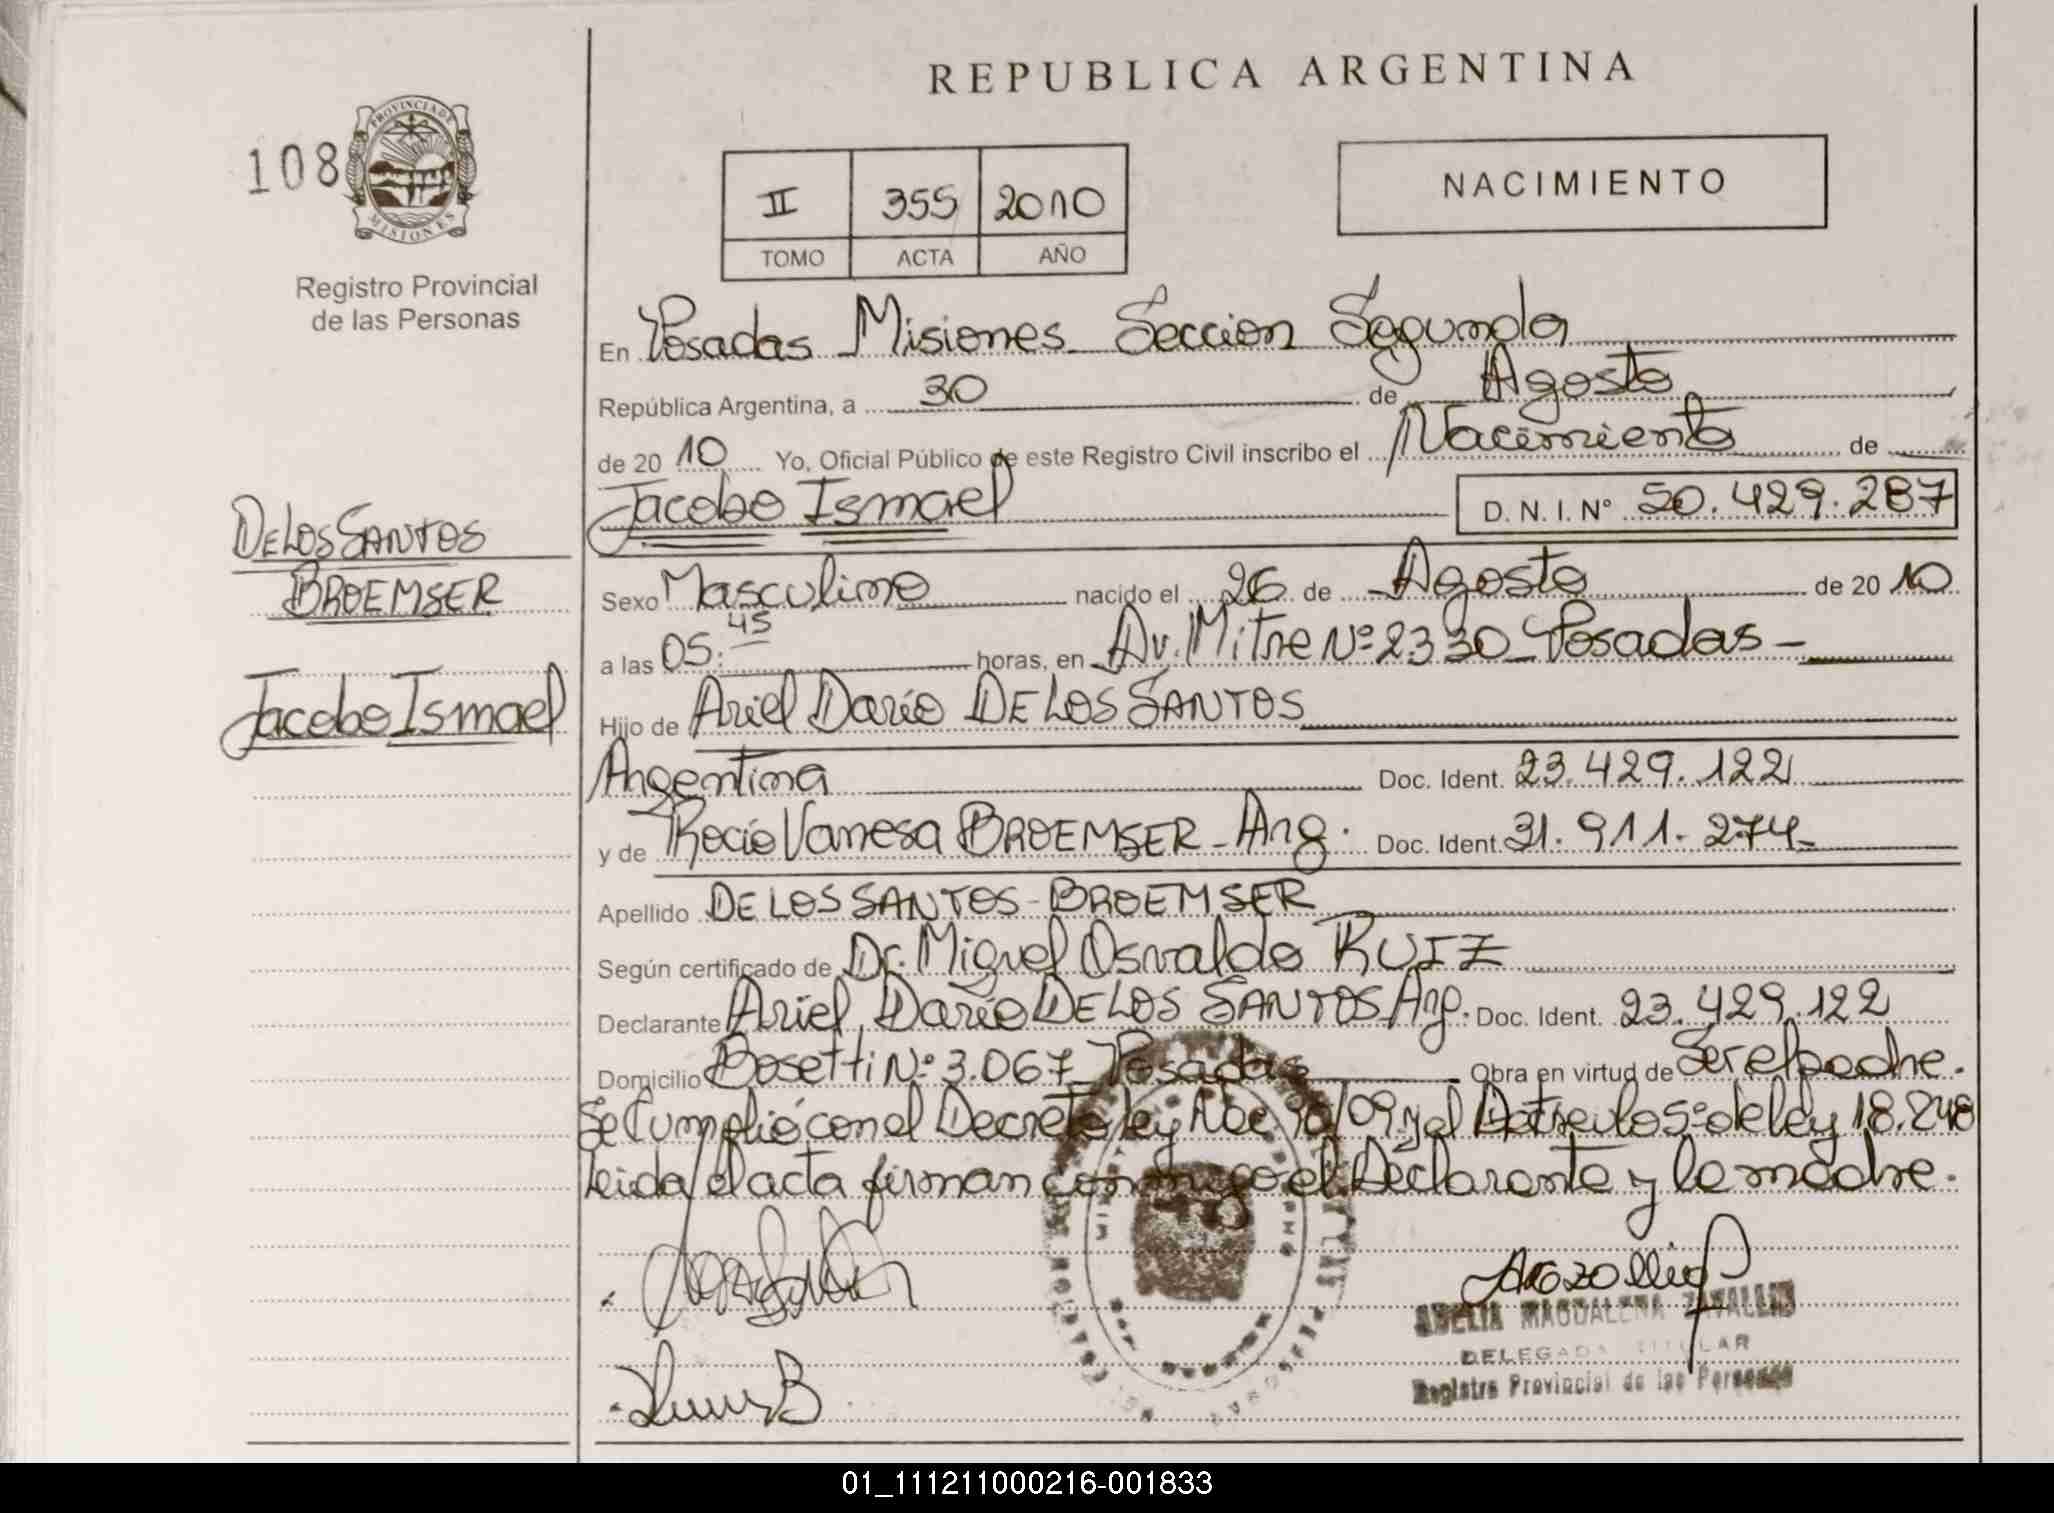 REPUBLICA ARGENTINA
108
PROVINCIA DE
MISIONES
Registro Provincial
de las Personas
II 355 2010
TOMO ACTA AÑO
NACIMIENTO
En Posadas Misiones Seccion Segunda
República Argentina, a 30 de Agosto
de 2010 Yo, Oficial Público de este Registro Civil inscribo el Nacimiento de
Jacobo Ismael D. N. I. Nº 50.429.287
DE LOS SANTOS
BROEMSER
Jacobo Ismael
Sexo Masculino nacido el 26 de Agosto de 2010
a las 05:45 horas, en Av. Mitre Nº 2330 Posadas -
Hijo de Ariel Darío DE LOS SANTOS
Argentina Doc. Ident. 23.429.122
y de Rocío Vanesa BROEMSER - Arg. Doc. Ident. 31.911.274-
Apellido DE LOS SANTOS - BROEMSER
Según certificado de Dr. Miguel Osvaldo RUIZ
Declarante Ariel Darío DE LOS SANTOS Arg. Doc. Ident. 23.429.122
Domicilio Bosetti Nº 3.067 Posadas Obra en virtud de Ser el padre.
Se Cumplió con el Decreto ley Nac. 90/09 y el 5º de ley 18.248
Leida el acta firman conmigo el Declarante y la madre.
ADELIA MAGDALENA ZAVALLIA
DELEGADA TITULAR
Registro Provincial de las Personas
01_111211000216-001833